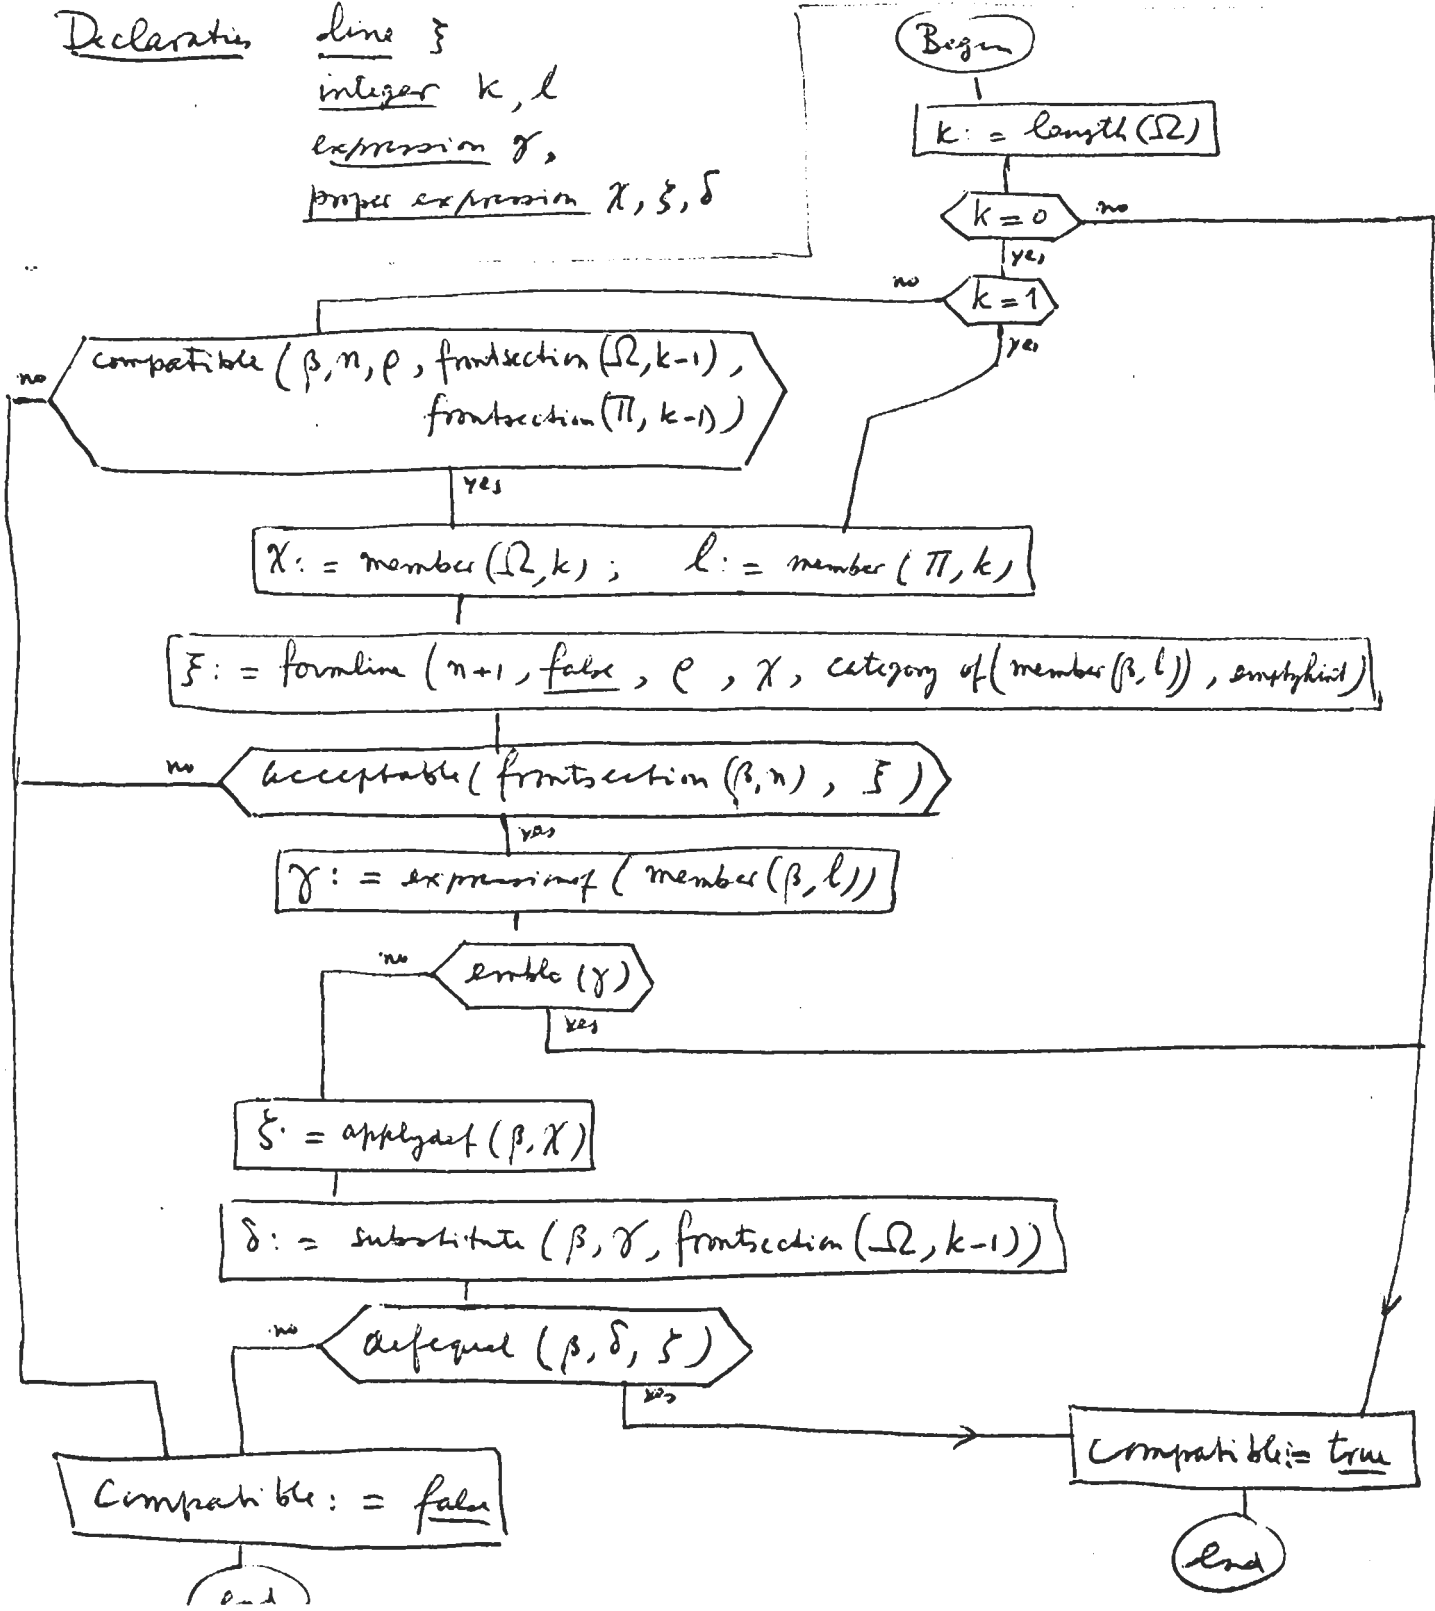 Declaraties line ξ
integer k, l
expression γ,
proper expression χ, ζ, δ
Begin
k := length(Ω)
k=0 no
yes
no k=1
yes
compatible (β, n, ρ, frontsection(Ω, k-1),
no
frontsection(Π, k-1))
yes
χ := member(Ω, k) ; l := member(Π, k)
ξ := formline (n+1, false, ρ, χ, category of (member(β, l)), emptyhint)
no acceptable (frontsection (β, n), ξ)
yes
γ := expressionof (member(β, l))
no (γ)
yes
ζ := applydef (β, χ)
δ := substitute (β, γ, frontsection(Ω, k-1))
no defequal (β, δ, ζ)
yes
Compatible := true
Compatible := false
End
End